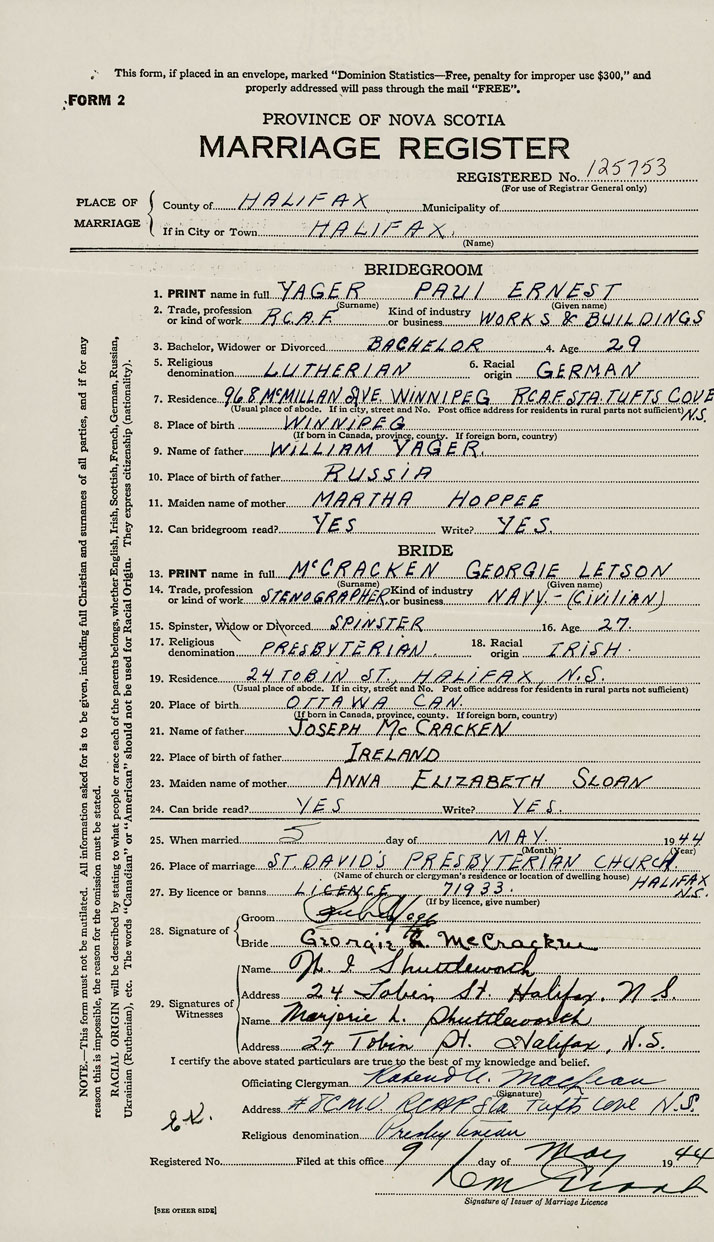 This form, if placed in an envelope, marked "Dominion Statistics—Free, penalty for improper use $300," and
properly addressed will pass through the mail "FREE".
FORM 2
PROVINCE OF NOVA SCOTIA
MARRIAGE REGISTER
REGISTERED No. 125753
(For use of Registrar General only)
PLACE OF MARRIAGE
County of HALIFAX Municipality of
If in City or Town HALIFAX.
(Name)
BRIDEGROOM
1. PRINT name in full YAGER PAUL ERNEST
(Surname) (Given name)
2. Trade, profession or kind of work R.C.A.F. Kind of industry or business WORKS & BUILDINGS
3. Bachelor, Widower or Divorced BACHELOR 4. Age 29
5. Religious denomination LUTHERIAN 6. Racial origin GERMAN
7. Residence 968 McMILLAN AVE. WINNIPEG RCAF STA. TUFTS COVE N.S.
(Usual place of abode. If in city, street and No. Post office address for residents in rural parts not sufficient)
8. Place of birth WINNIPEG
(If born in Canada, province, county. If foreign born, country)
9. Name of father WILLIAM YAGER.
10. Place of birth of father RUSSIA
11. Maiden name of mother MARTHA HOPPEE
12. Can bridegroom read? YES Write? YES.
BRIDE
13. PRINT name in full McCRACKEN GEORGIE LETSON
(Surname) (Given name)
14. Trade, profession or kind of work STENOGRAPHER Kind of industry or business NAVY - (CIVILIAN)
15. Spinster, Widow or Divorced SPINSTER 16. Age 27.
17. Religious denomination PRESBYTERIAN. 18. Racial origin IRISH.
19. Residence 24 TOBIN ST., HALIFAX, N.S.
(Usual place of abode. If in city, street and No. Post office address for residents in rural parts not sufficient)
20. Place of birth OTTAWA CAN.
(If born in Canada, province, county. If foreign born, country)
21. Name of father JOSEPH McCRACKEN
22. Place of birth of father IRELAND
23. Maiden name of mother ANNA ELIZABETH SLOAN
24. Can bride read? YES Write? YES.
25. When married 5 day of MAY. 1944
(Month) (Year)
26. Place of marriage ST. DAVID'S PRESBYTERIAN CHURCH. HALIFAX N.S.
(Name of church or clergyman's residence or location of dwelling house)
27. By licence or banns LICENCE 71933.
(If by licence, give number)
28. Signature of
Groom
Bride Georgie L. McCracken
29. Signatures of Witnesses
Name Shuttleworth
Address 24 Tobin St. Halifax, N.S.
Name Marjorie L. Shuttleworth
Address 24 Tobin St. Halifax, N.S.
I certify the above stated particulars are true to the best of my knowledge and belief.
Officiating Clergyman MacLean
(Signature)
Address RCAF Sta Tufts Cove N.S.
Religious denomination Presbyterian
Registered No. Filed at this office 9 day of May 1944
Signature of Issuer of Marriage Licence
[SEE OTHER SIDE]
NOTE.—This form must not be mutilated. All information asked for is to be given, including full Christian and surnames of all parties, and if for any
reason this is impossible, the reason for the omission must be stated.
RACIAL ORIGIN will be described by stating to what people or race each of the parents belongs, whether English, Irish, Scottish, French, German, Russian,
Ukrainian (Ruthenian), etc. The words "Canadian" or "American" should not be used for Racial Origin. They express citizenship (nationality).